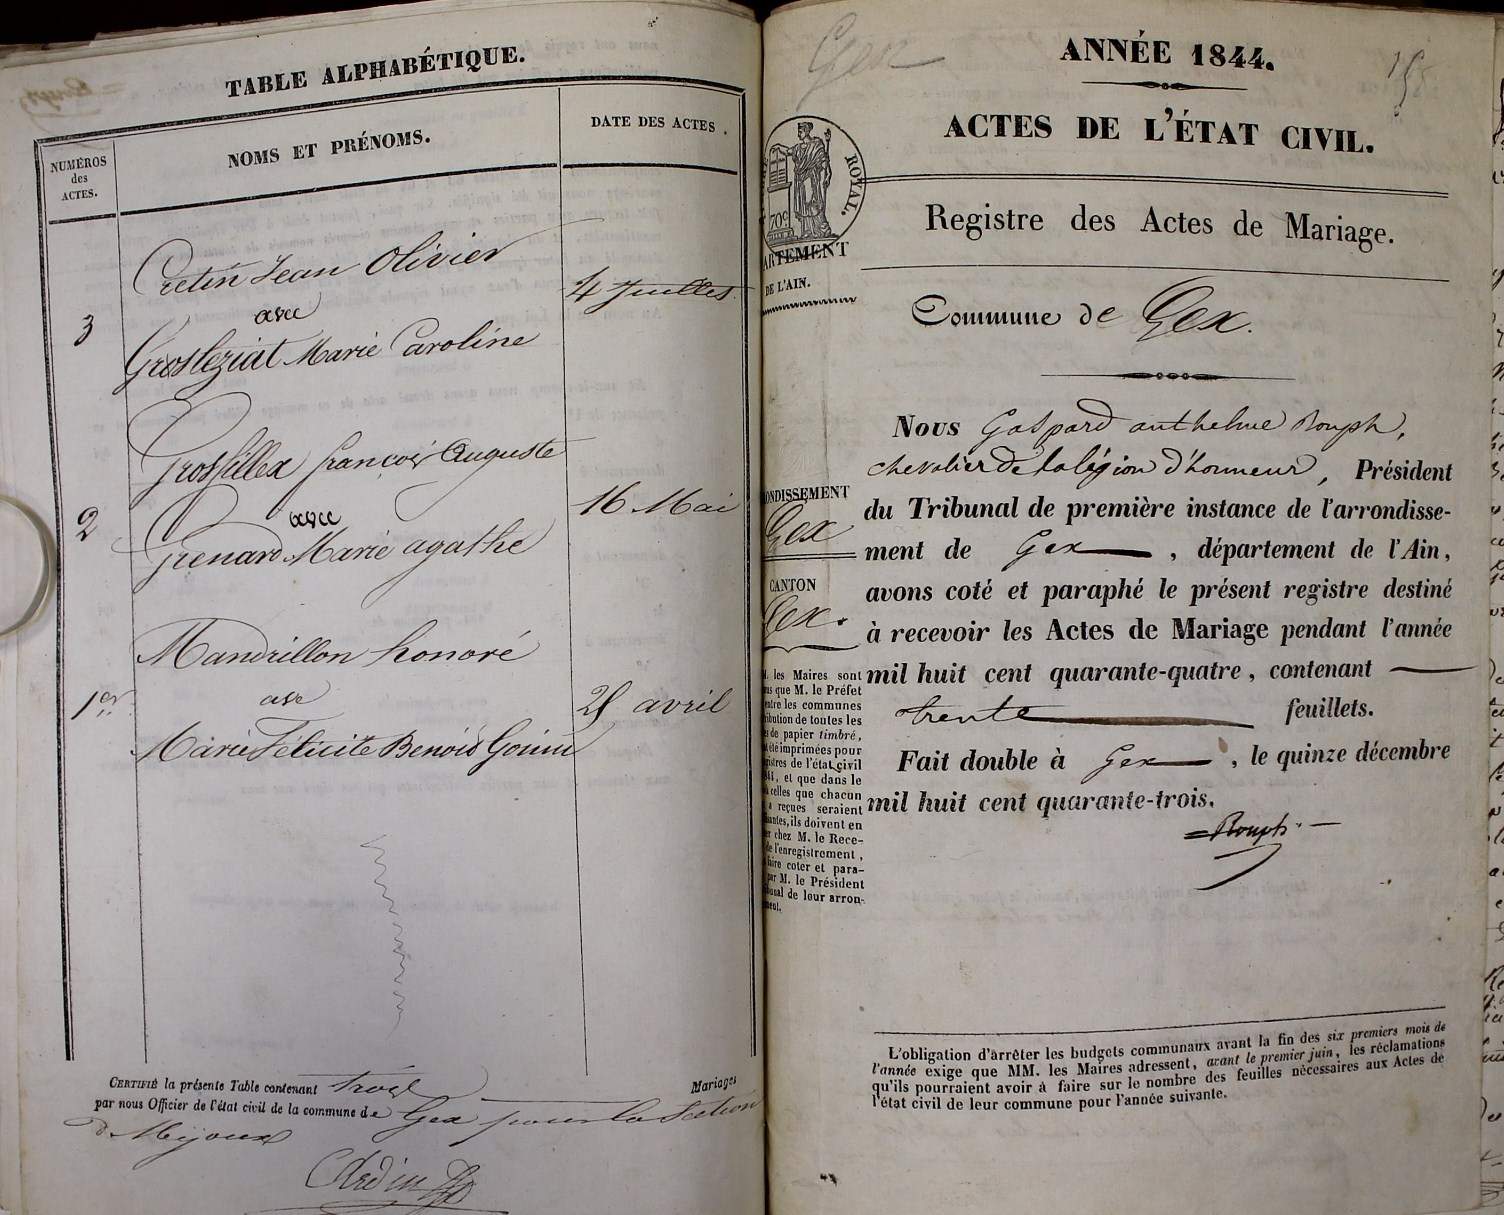 TABLE ALPHABÉTIQUE.
NUMÉROS
des
ACTES.
NOMS ET PRÉNOMS.
DATE DES ACTES.
Cretin Jean Olivier
avec
3
4 Juillet
Grosleziat Marie Caroline
Grosfillex françois Auguste
avec
2
16 Mai
Grenard Marie agathe
Mandrillon honoré
1er
avec
avril
Marie Félicité Benoid
CERTIFIÉ la présente Table contenant trois Mariages
par nous Officier de l'état civil de la commune de Gex pour la section
de Mijoux
ANNÉE 1844.
Gex
ACTES DE L'ÉTAT CIVIL.
ROYAL.
70c
ARTEMENT
DE L'AIN.
Registre des Actes de Mariage.
Commune de Gex.
ONDISSEMENT
Gex
CANTON
Gex.
Nous Gaspard anthelme Rouph,
chevalier de la légion d'honneur, Président
du Tribunal de première instance de l'arrondisse-
ment de Gex, département de l'Ain,
avons coté et paraphé le présent registre destiné
à recevoir les Actes de Mariage pendant l'année
mil huit cent quarante-quatre, contenant
trente feuillets.
Fait double à Gex, le quinze décembre
mil huit cent quarante-trois.
Rouph
les Maires sont
que M. le Préfet
les communes
de toutes les
de papier timbré,
été imprimées pour
de l'état civil
, et que dans le
celles que chacun
reçues seraient
, ils doivent en
chez M. le Rece-
de l'enregistrement,
faire coter et para-
par M. le Président
de leur arron-
L'obligation d'arrêter les budgets communaux avant la fin des six premiers mois de
l'année exige que MM. les Maires adressent, avant le premier juin, les réclamations
qu'ils pourraient avoir à faire sur le nombre des feuilles nécessaires aux Actes de
l'état civil de leur commune pour l'année suivante.